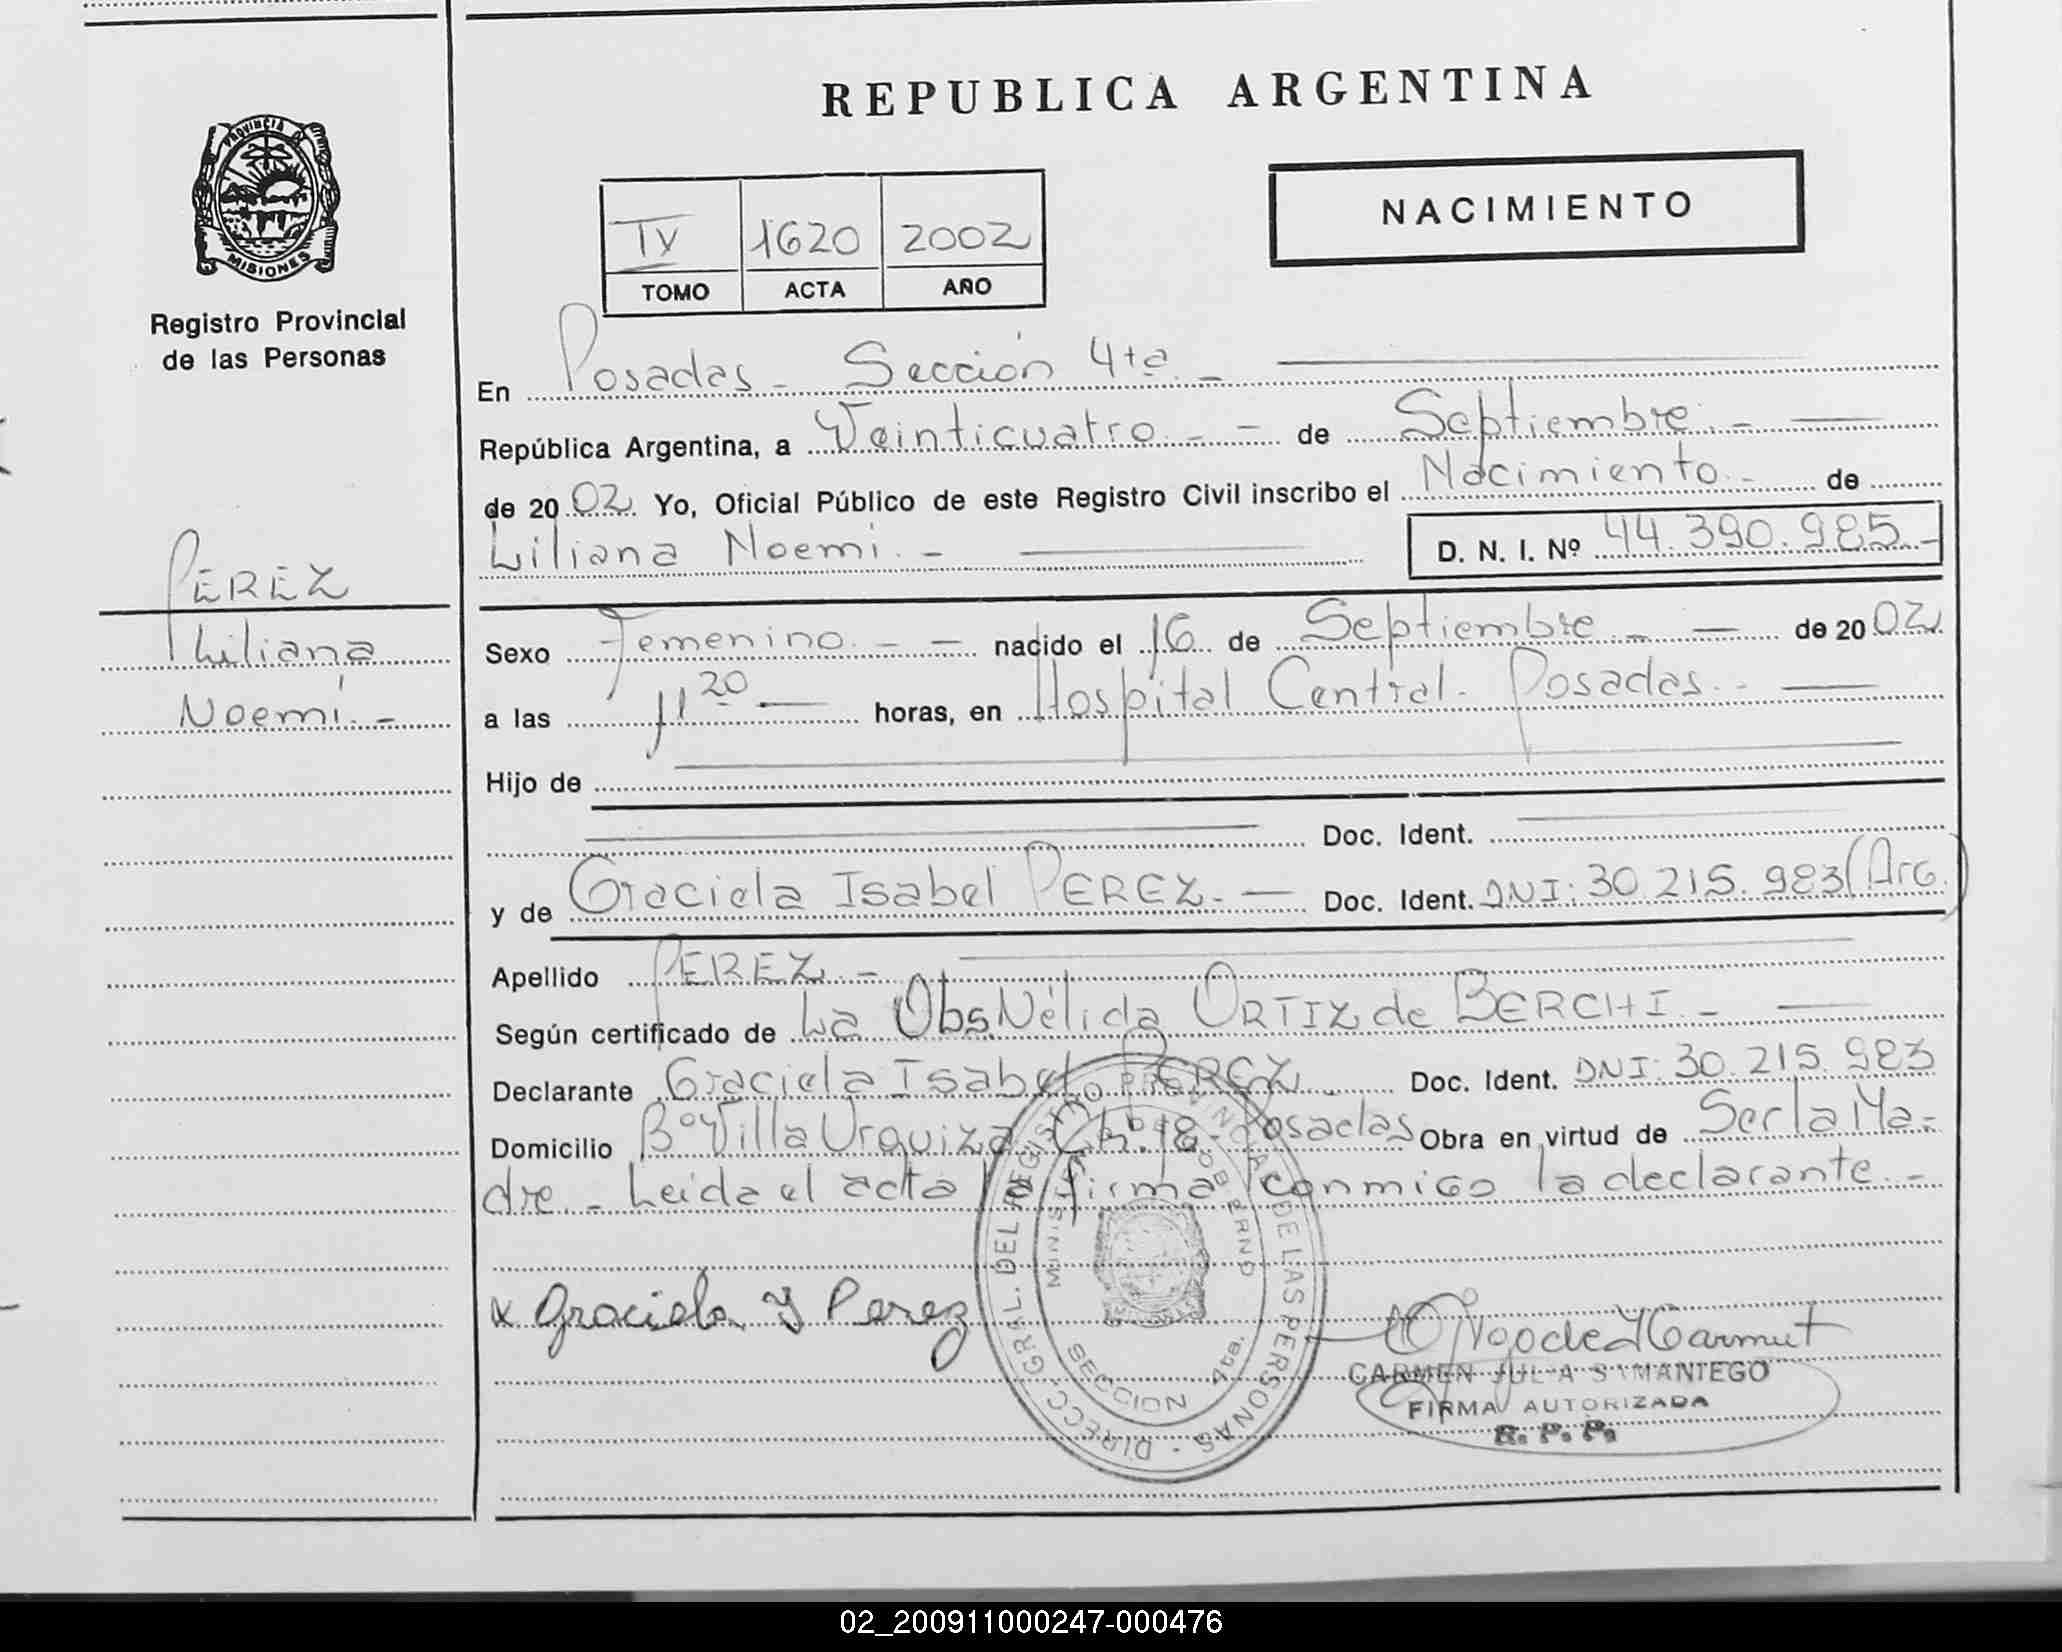 REPUBLICA ARGENTINA
PROVINCIA DE
MISIONES
Registro Provincial
de las Personas
NACIMIENTO
IV 1620 2002
TOMO ACTA AÑO
En Posadas - Sección 4ta. -
República Argentina, a Veinticuatro. - - de Septiembre. -
de 2002 Yo, Oficial Público de este Registro Civil inscribo el Nacimiento. - de
Liliana Noemi. - D. N. I. Nº 44.390.985.-
PEREZ
Liliana
Noemi. -
Sexo Femenino. - - nacido el 16 de Septiembre - - de 2002
a las 11 20 - horas, en Hospital Central. Posadas. -
Hijo de
Doc. Ident.
y de Graciela Isabel PEREZ. - Doc. Ident. DNI: 30.215.983 (Arg.)
Apellido PEREZ. -
Según certificado de La Obs. Nélida ORTIZ de BERCHI. -
Declarante Graciela Isabel PEREZ Doc. Ident. DNI: 30.215.983
Domicilio Bº Villa Urquiza Ch. 18 - Posadas Obra en virtud de Ser la Ma=
dre. - Leida el acta la firma conmigo la declarante. -
x Graciela I Perez
DIRECC. GRAL. DEL REGISTRO PROVINCIAL DE LAS PERSONAS
MINISTERIO DE GOBIERNO
SECCION 4ta.
CARMEN JULIA SAMANIEGO
FIRMA AUTORIZADA
R. P. P.
02_200911000247-000476